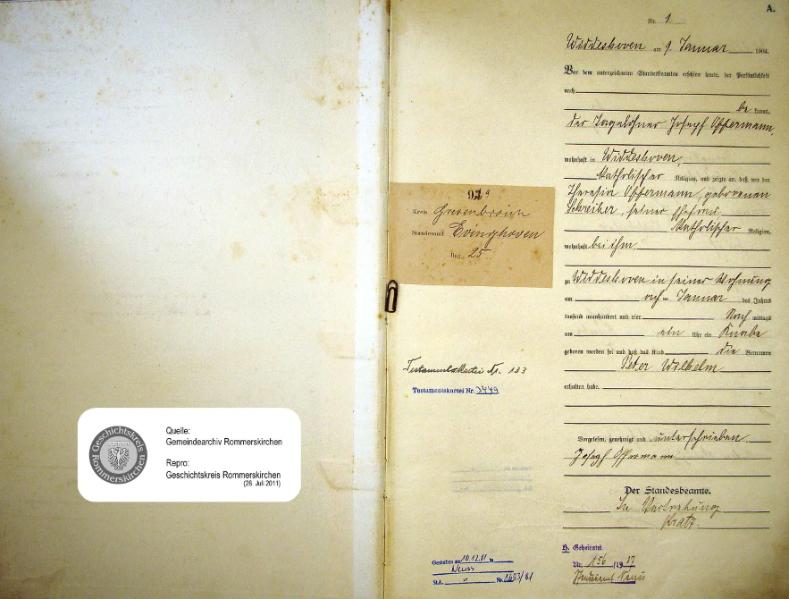 Quelle:
Gemeindearchiv Rommerskirchen
Repro:
Geschichtskreis Rommerskirchen
(26. Juli 2011)
Geschichtskreis
Rommerskirchen
Kreis Grevenbroich
Standesamt Evinghoven
25
Testamentskartei Nr. 133
Testamentskartei Nr. 3449
Gestorben am 10.12.81 in
Neuss
A.
Nr. 1
Widdeshoven am 9. Januar 1904.
Vor dem unterzeichneten Standesbeamten erschien heute, der Persönlichkeit
nach
be kannt,
der Tagelöhner Joseph Offermann,
wohnhaft in Widdeshoven,
katholischer Religion, und zeigte an, daß von der
Theresia Offermann, geborenen
Schreiber, seiner Ehefrau
katholischer Religion,
wohnhaft bei ihm
zu Widdeshoven in seiner Wohnung
am Januar des Jahres
tausend neunhundert und vier Nach mittags
um ein Uhr ein Knabe
geboren worden sei und daß das Kind die Vornamen
Peter Wilhelm
erhalten habe.
Vorgelesen, genehmigt und unterschrieben
Joseph Offermann
Der Standesbeamte.
In Vertretung
Kratz
Geheiratet